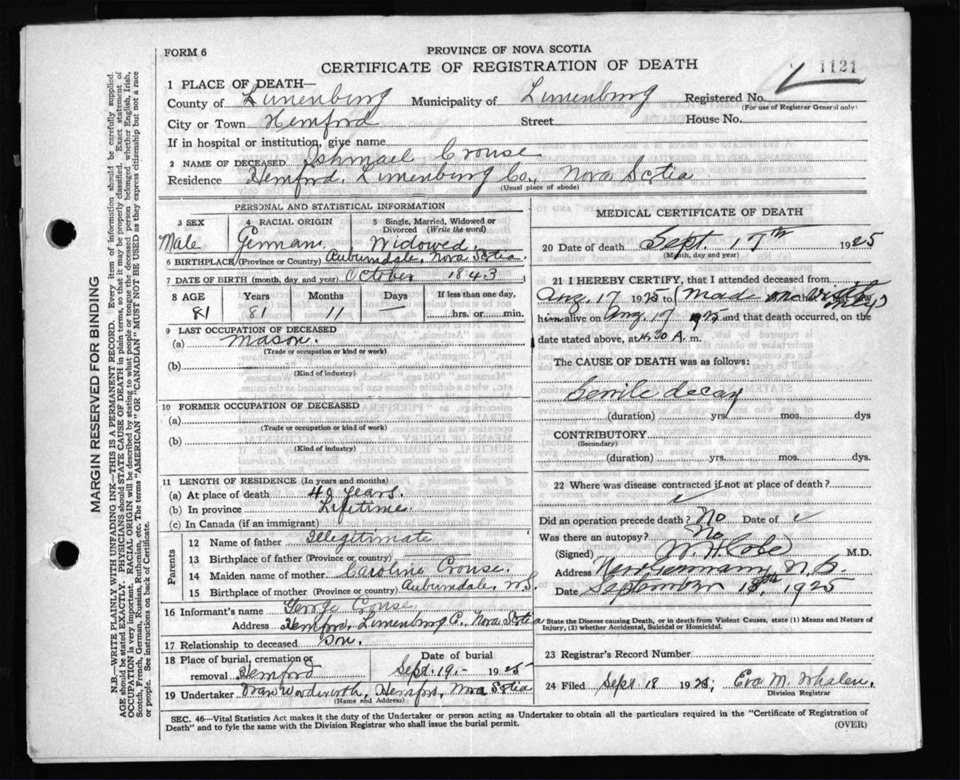 FORM 6
PROVINCE OF NOVA SCOTIA
CERTIFICATE OF REGISTRATION OF DEATH
1121
1 PLACE OF DEATH—
County of Lunenburg Municipality of Lunenburg Registered No.
(For use of Registrar General only)
City or Town Hemford Street House No.
If in hospital or institution, give name
2 NAME OF DECEASED Ishmael Crouse
Residence Hemford, Lunenburg Co., Nova Scotia
(Usual place of abode)
PERSONAL AND STATISTICAL INFORMATION
3 SEX 4 RACIAL ORIGIN 5 Single, Married, Widowed or Divorced (Write the word)
Male German Widowed.
6 BIRTHPLACE (Province or Country) Auburndale, Nova Scotia
7 DATE OF BIRTH (month, day and year) October 1843
8 AGE Years Months Days If less than one day,
81 81 11 — hrs. or min.
9 LAST OCCUPATION OF DECEASED
(a) Mason.
(Trade or occupation or kind or work)
(b)
(Kind of industry)
10 FORMER OCCUPATION OF DECEASED
(a)
(Trade or occupation or kind of work)
(b)
(Kind of industry)
11 LENGTH OF RESIDENCE (In years and months)
(a) At place of death years.
(b) In province Lifetime.
(c) In Canada (if an immigrant)
Parents
12 Name of father Illegitimate
13 Birthplace of father (Province or country)
14 Maiden name of mother Caroline Crouse.
15 Birthplace of mother (Province or country) Auburndale, N.S.
16 Informant's name George Crouse
Address Hemford, Lunenburg Co., Nova Scotia
17 Relationship to deceased Son.
18 Place of burial, cremation or removal Hemford Date of burial Sept. 19.- 1925
19 Undertaker Wordsworth, Hemford, Nova Scotia
(Name and Address)
MEDICAL CERTIFICATE OF DEATH
20 Date of death Sept. 17th 1925
(Month, day and year)
21 I HEREBY CERTIFY, that I attended deceased from
Aug. 17 1925 (Mad one
him alive on Aug. 17 192 and that death occurred, on the
date stated above, at A. m.
The CAUSE OF DEATH was as follows:
Senile decay
(duration) yrs. mos. dys
CONTRIBUTORY
(Secondary)
(duration) yrs. mos. dys.
22 Where was disease contracted if not at place of death?
Did an operation precede death? No Date of
Was there an autopsy? No
(Signed) M.D.
Address New Germany N.S.
Date September 18th, 1925
State the Disease causing Death, or in death from Violent Causes, state (1) Means and Nature of Injury, (2) whether Accidental, Suicidal or Homicidal.
23 Registrar's Record Number
24 Filed Sept. 18 1925; Eva M. Whalen,
Division Registrar
SEC. 46—Vital Statistics Act makes it the duty of the Undertaker or person acting as Undertaker to obtain all the particulars required in the "Certificate of Registration of
Death" and to fyle the same with the Division Registrar who shall issue the burial permit.
(OVER)
MARGIN RESERVED FOR BINDING
N.B.—WRITE PLAINLY WITH UNFADING INK—THIS IS A PERMANENT RECORD. Every item of information should be carefully supplied.
AGE should be stated EXACTLY. PHYSICIANS should STATE CAUSE OF DEATH in plain terms, so that it may be properly classified. Exact statement of
OCCUPATION is very important. RACIAL ORIGIN will be described by stating to what people or tongue the deceased person belonged whether English, Irish,
Scotch, French, German, Russian, Ruthenian, etc. The terms "AMERICAN" OR "CANADIAN" MUST NOT BE USED as they express citizenship but not a race
or people. See instructions on back of Certificate.